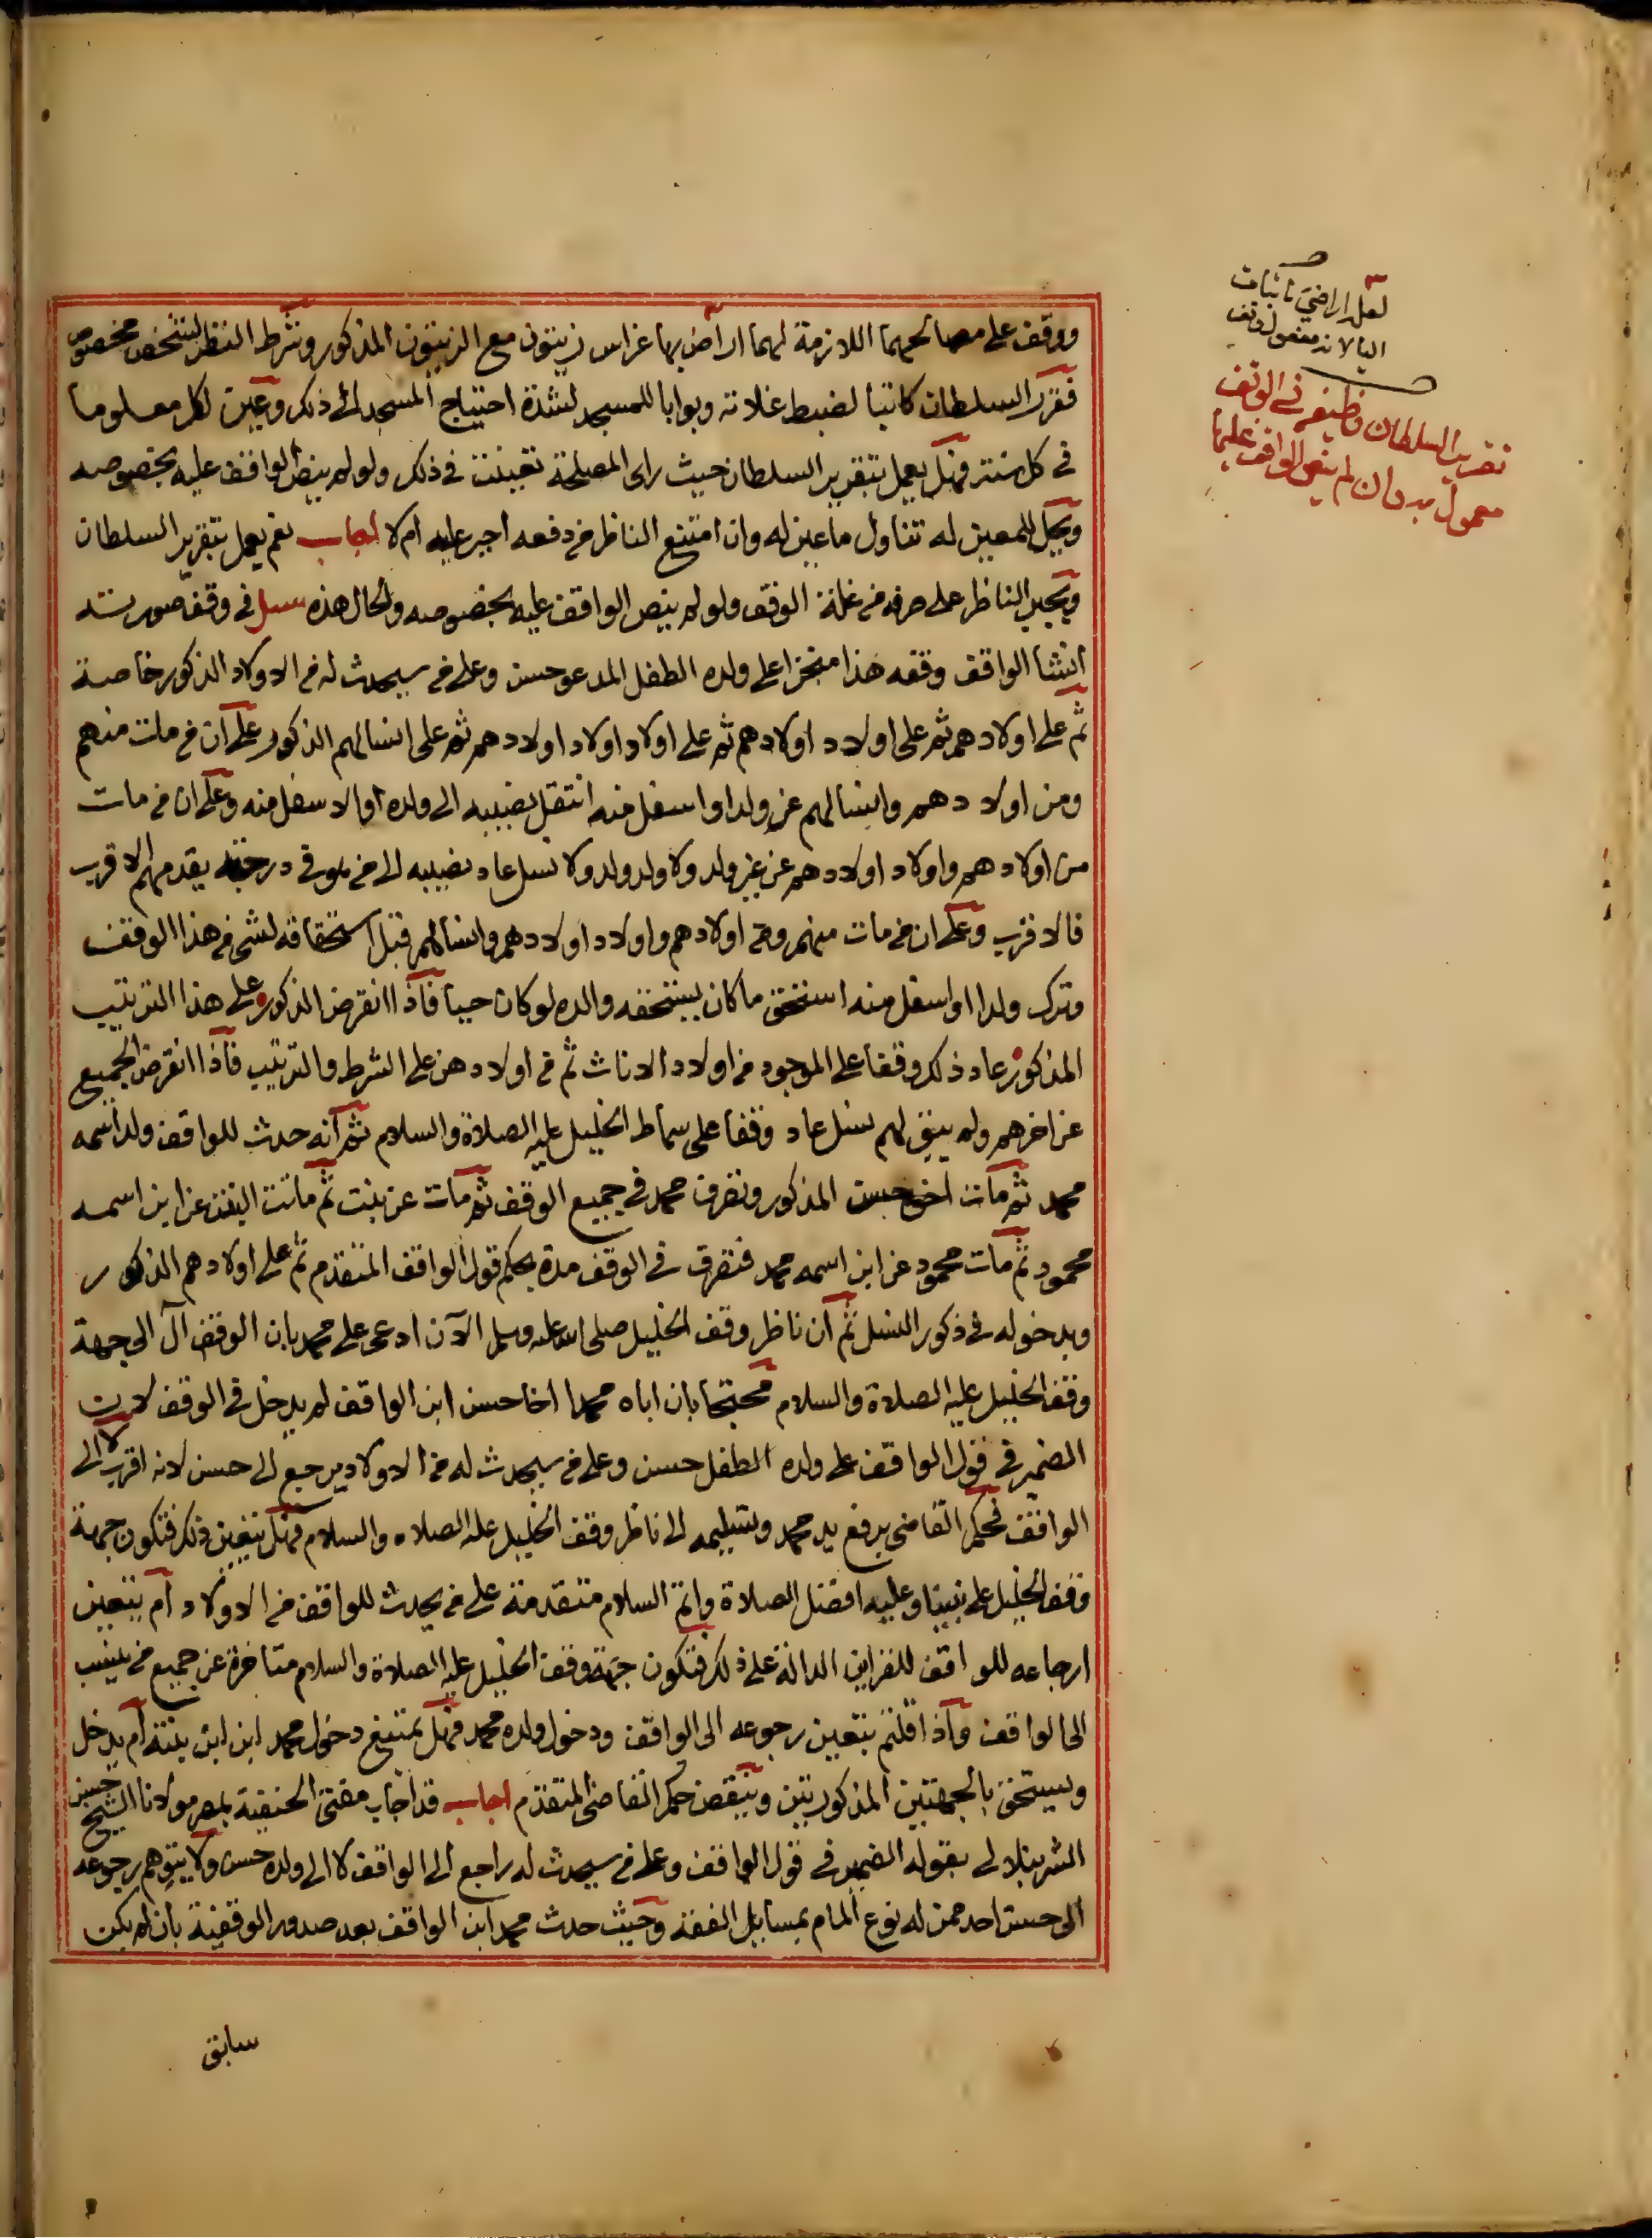 ووقف على مصالحهما اللازمة لهما اراض بها غراس زيتون مع الزيتون المذكور وشرط النظر لشخص مخصوص
فقرر السلطان كاتبا لضبط غلاته وبوابا للمسجد لشدة احتياج المسجد الى ذلك وعين لكل معلوما
في كل سنة فهل يعمل بتقرير السلطان حيث راى المصلحة تعينت في ذلك ولو لم ينص الواقف عليه بخصوصه
ويحل للمعين له تناول ما عين له وان امتنع الناظر من دفعه اجبر عليه ام لا اجاب نعم يعمل بتقرير السلطان
ويجبر الناظر على صرفه من غلة الوقف ولو لم ينص الواقف عليه بخصوصه والحال هذه سئل في وقف صورته
انشا الواقف وقفه هذا منجزا على ولده الطفل المدعو حسن وعلى من سيحدث له من الاولاد الذكور خاصة
ثم على اولادهم ثم على اولاد اولادهم ثم على اولاد اولاد اولادهم ثم على انسالهم الذكور على ان من مات منهم
ومن اولادهم وانسالهم عن ولد او اسفل منه انتقل نصيبه الى ولده او الاسفل منه وعلى ان من مات
من اولادهم واولاد اولادهم عن غير ولد ولا ولد ولد ولا نسل عاد نصيبه الى من هو في درجته يقدم منهم الاقرب
فالاقرب وعلى ان من مات منهم ومن اولادهم واولاد اولادهم وانسالهم قبل استحقاقه لشي من هذا الوقف
وترك ولدا او اسفل منه استحق ما كان يستحقه والده لو كان حيا فاذا انقرض الذكور على هذا الترتيب
المذكور عاد ذلك وقفا على الموجود من اولاد الاناث ثم من اولادهن على الشرط والترتيب فاذا انقرض الجميع
عن اخرهم ولم يبق لهم نسل عاد وقفا على سماط الخليل عليه الصلاة والسلام ثم انه حدث للواقف ولد اسمه
محمد ثم مات اخو حسن المذكور وتصرف محمد في جميع الوقف ثم مات عن بنت ثم ماتت البنت عن ابن اسمه
محمود ثم مات محمود عن ابن اسمه محمد فتصرف في الوقف مدة بحكم قول الواقف المتقدم ثم على اولادهم الذكور
وبدخوله في ذكور النسل ثم ان ناظر وقف الخليل صلى الله عليه وسلم الآن ادعى على محمد بان الوقف آل الى جهة
وقف الخليل عليه الصلاة والسلام محتجا بان اباه محمدا اخا حسن ابن الواقف لم يدخل في الوقف لان
الضمير في قول الواقف على ولده الطفل حسن وعلى من سيحدث له من الاولاد يرجع الى حسن لانه اقرب لا الى
الواقف فحكم القاضي برفع يد محمد وتسليمه الى ناظر وقف الخليل عليه الصلاه والسلام فهل يتعين ذلك فتكون جهة
وقف الخليل على نبينا وعليه افضل الصلاة واتم السلام متقدمة على من يحدث للواقف من الاولاد ام يتعين
ارجاعه للواقف للقراين الدالة على ذلك فتكون جهة وقف الخليل عليه الصلاة والسلام متاخرة عن جميع من ينسب
الى الواقف واذا قلتم بتعين رجوعه الى الواقف ودخول ولده محمد فهل يمتنع دخول محمد ابن ابن بنته ام يدخل
ويستحق بالجهتين المذكورتين وينقض حكم القاضي المتقدم اجاب قد اجاب مفتي الحنفية بمصر مولانا الشيخ حسن
الشرنبلالى بقوله الضمير في قول الواقف وعلى من سيحدث له راجع الى الواقف لا الى ولده حسن ولا يتوهم رجوعه
الى حسن احد ممن له نوع المام بمسايل الفقه وحيث حدث محمد ابن الواقف بعد صدور الوقفية بان لم يكن
سابق
لعل اراضي باثبات
اليا لانه مفعول وقف
تقرير السلطان وظيفة في الوقف
معمول به وان لم ينص الواقف عليها